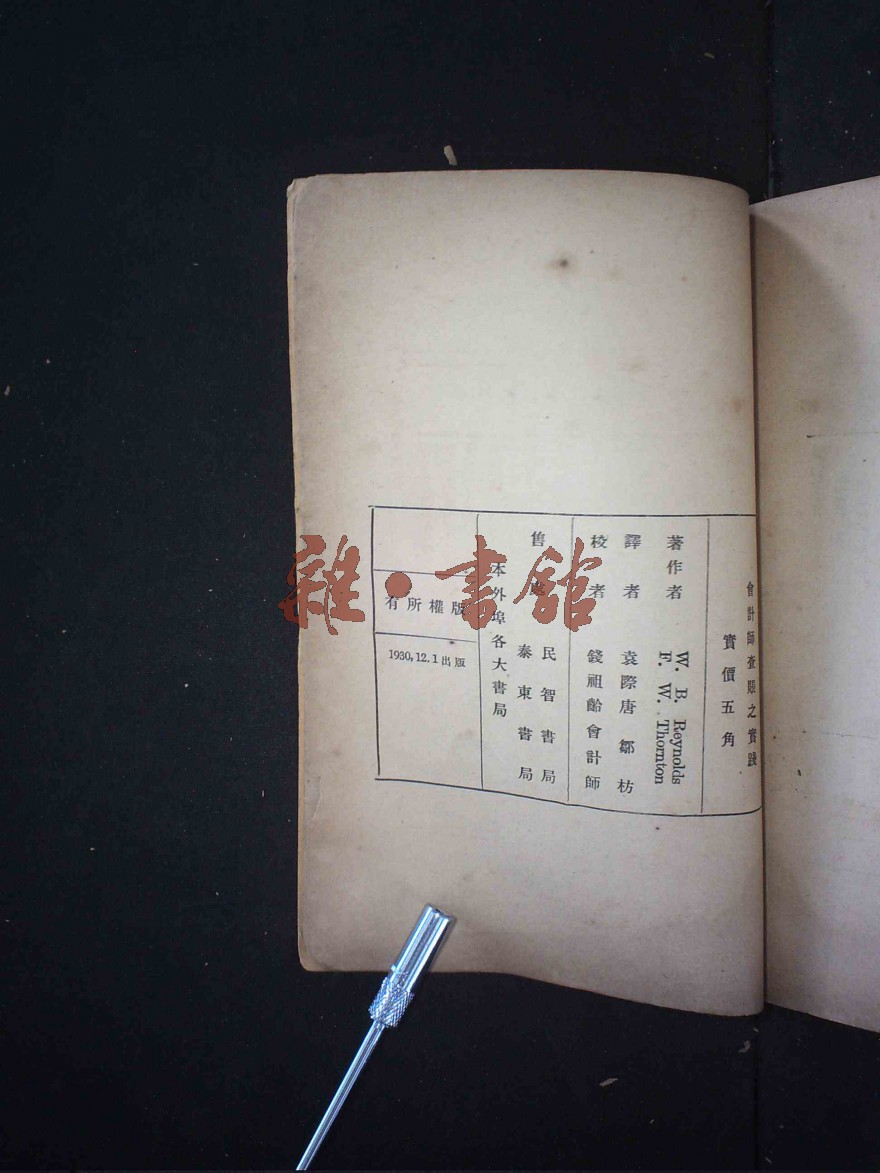 會計師查賬之實踐
實價五角
著作者 W. B. Reynolds
F. W. Thornton
譯者 袁際唐 鄒枋
校者 錢祖齡會計師
售處 民智書局
泰東書局
本外埠各大書局
有所權版
1930,12.1出版
雜·書館